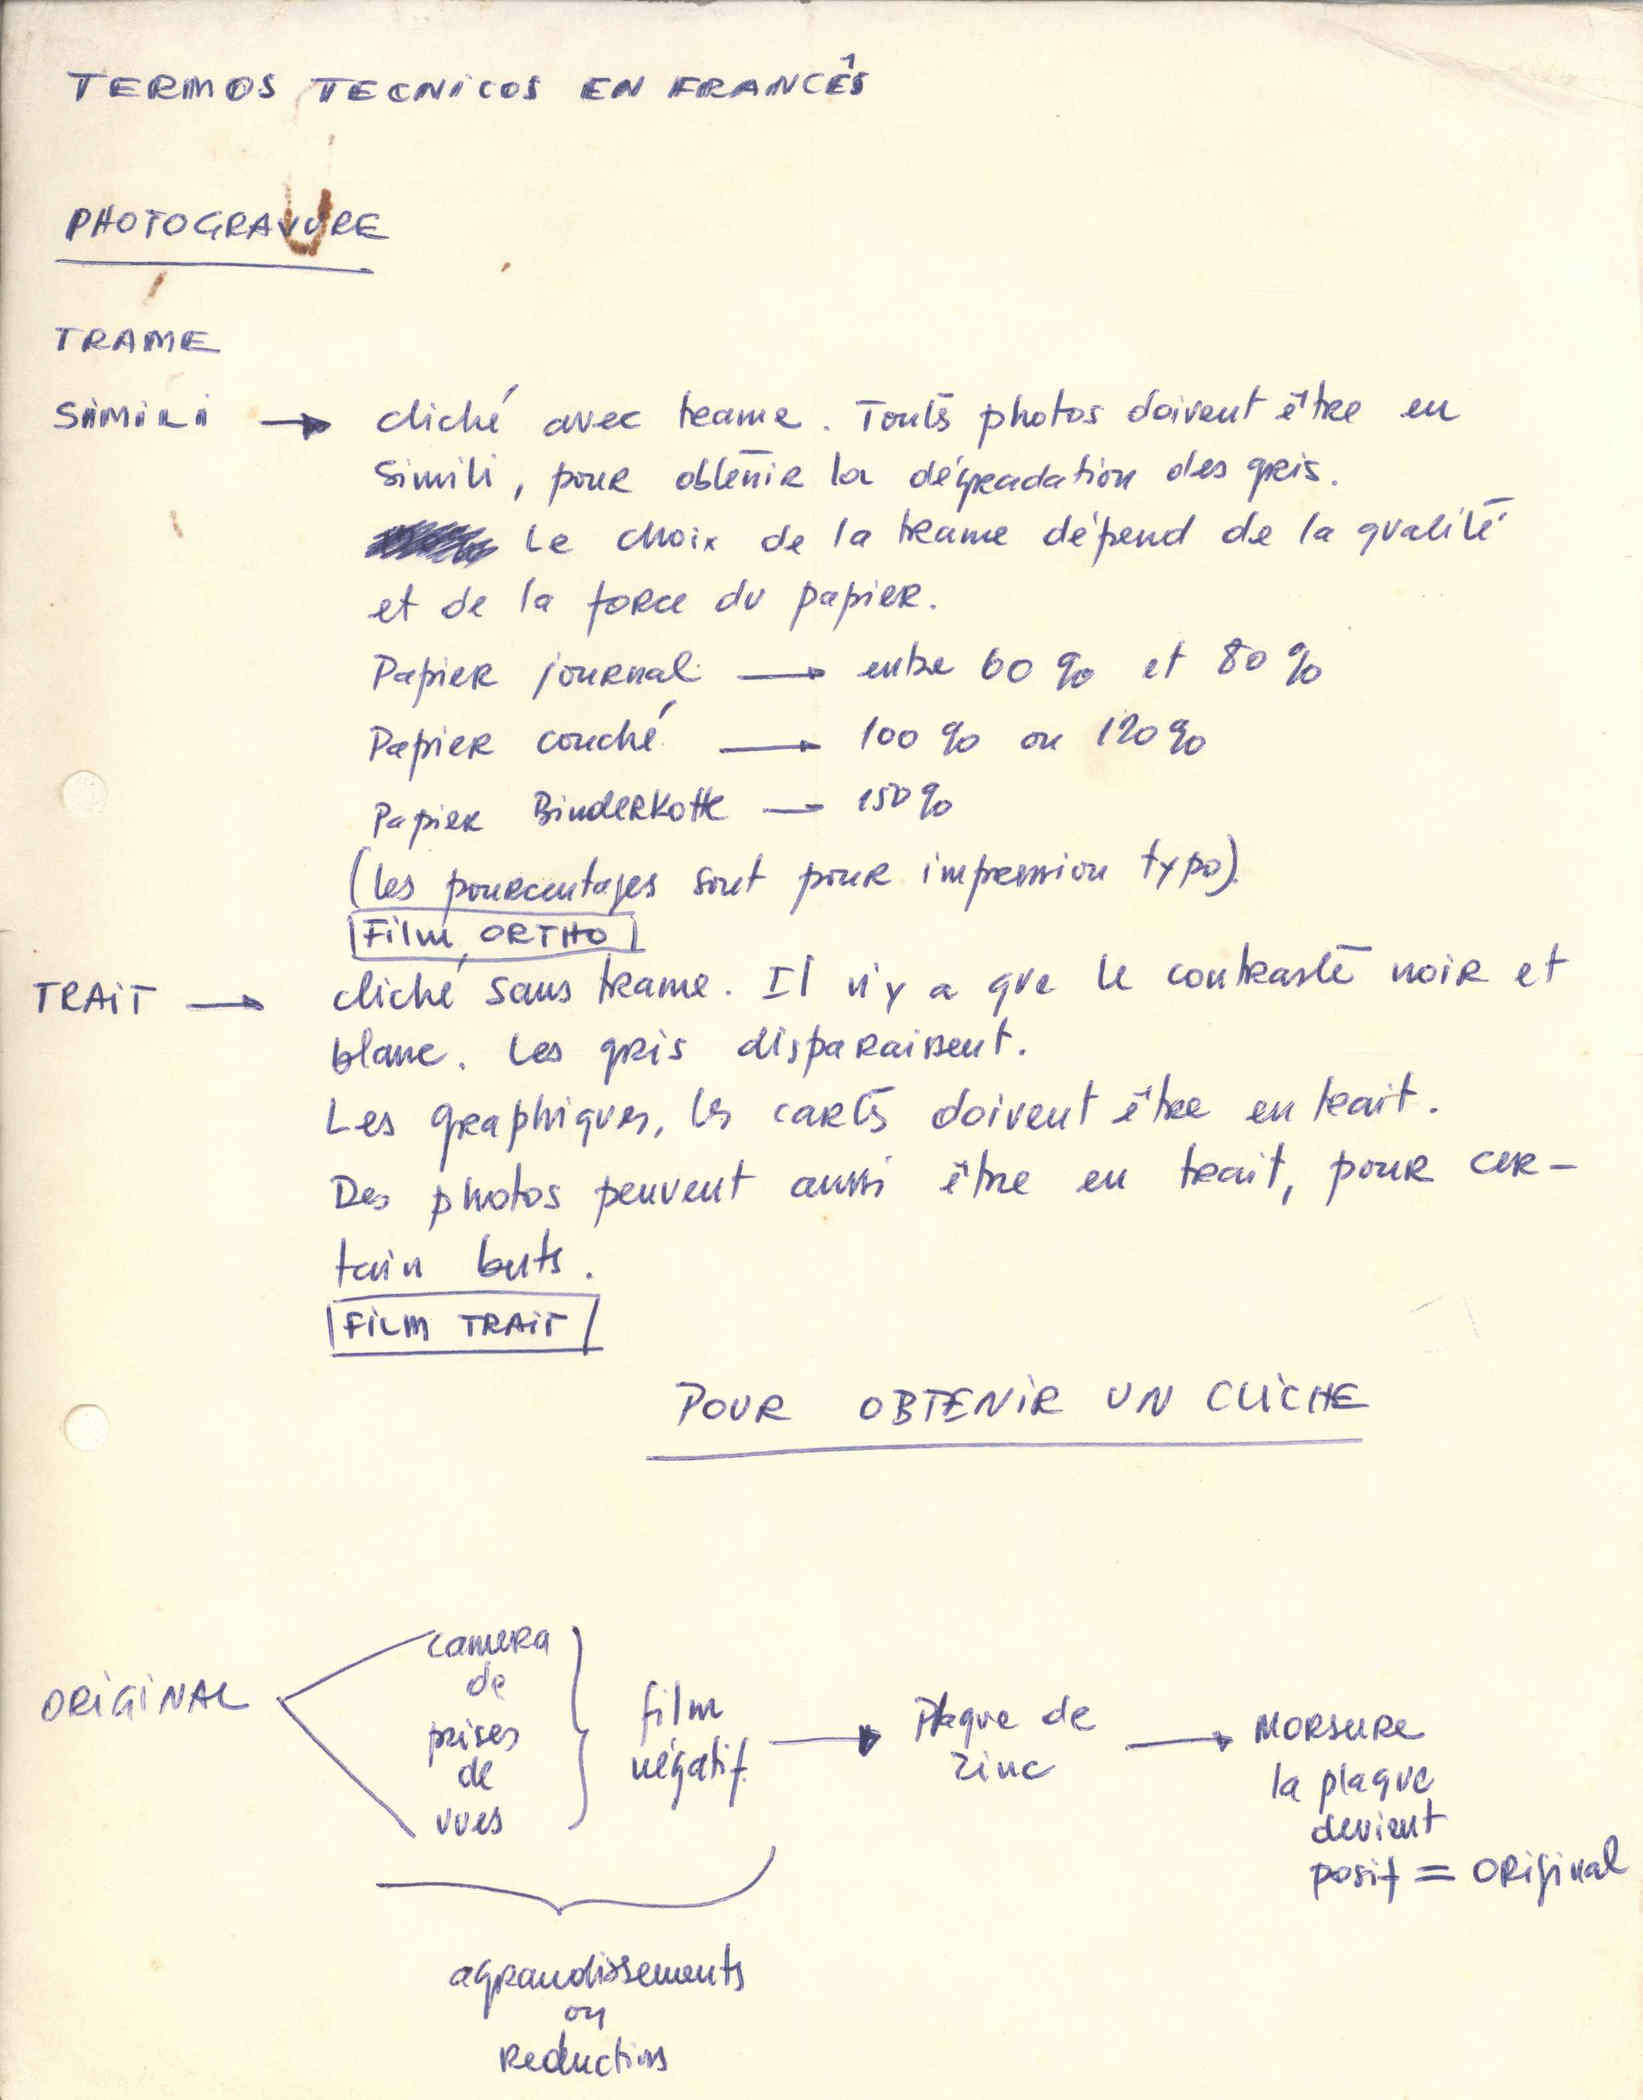 TERMOS TECNICOS EN FRANCÊS
PHOTOGRAVURE
TRAME
SIMILI → cliché avec trame. Touts photos doivent être en
simili, pour obtenir la dégradation des gris.
Le choix de la trame dépend de la qualité
et de la force du papier.
Papier journal → entre 60% et 80%
Papier couché → 100% ou 120%
Papier Binderkotte → 150%
(les pourcentages sont pour impression typo).
Film ORTHO
TRAIT → cliché sans trame. Il n'y a que le contraste noir et
blanc. Les gris disparaissent.
Les graphiques, les cartes doivent être en trait.
Des photos peuvent aussi être en trait, pour cer-
tain buts.
FILM TRAIT
POUR OBTENIR UN CLICHE
ORIGINAL
camera
de
prises
de
vues
film
négatif
→ Plaque de
zinc
→ MORSURE
la plaque
devient
posif = original
agrandissements
ou
reductions